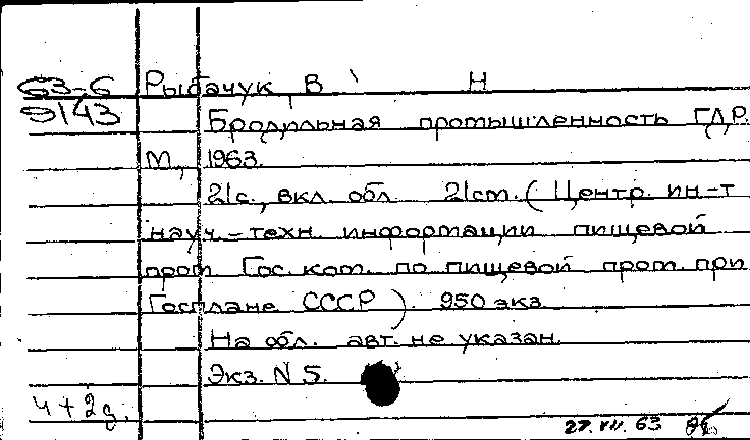 63-6 Рыбачук, В Н
9143 Бродильная промышленность ГДР.
М., 1963.
21с., вкл. обл. 21см. (Центр. ин-т
науч.-техн. информации пищевой
пром. Гос. ком. по пищевой пром. при
Госплане СССР). 950 экз.
На обл. авт. не указан.
Экз. N 5.
4 + 2д.
27.VII.63